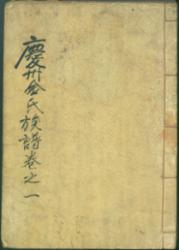 慶州金氏族譜卷之一